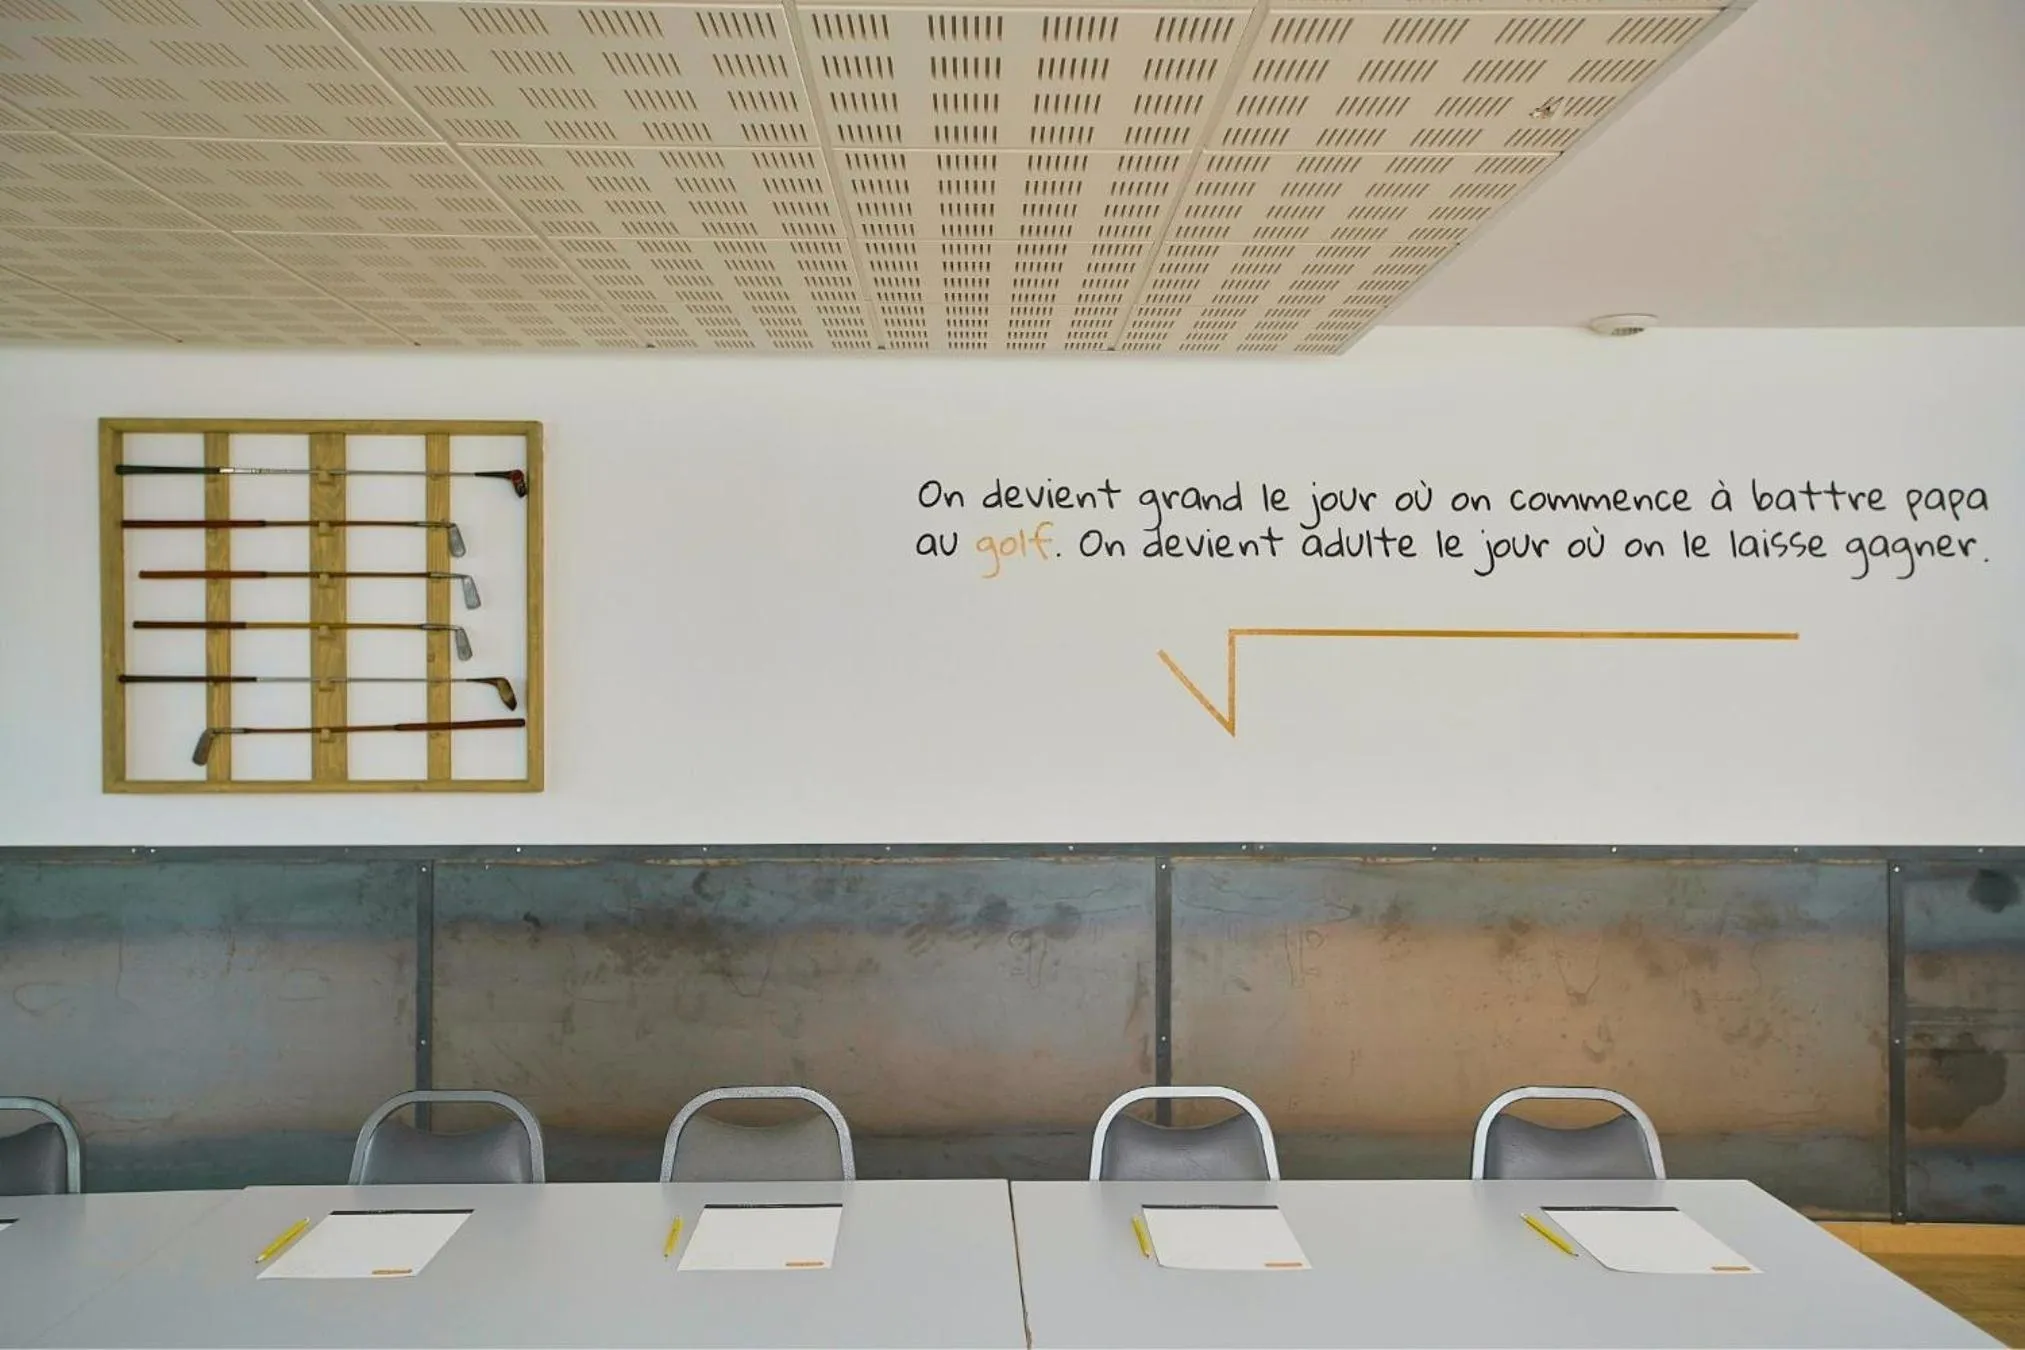 On devient grand le jour où on commence à battre papa
au golf. On devient adulte le jour où on le laisse gagner.